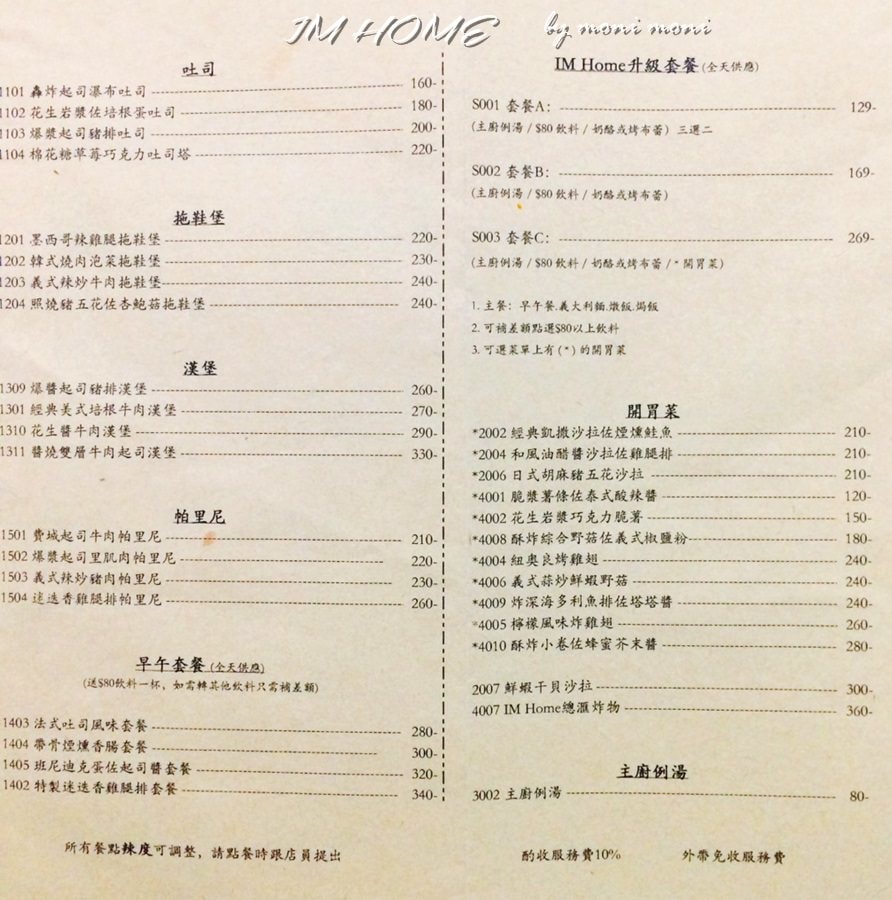 IM HOME by moni moni
吐司
1101 轟炸起司瀑布吐司 160-
1102 花生岩漿佐培根蛋吐司 180-
1103 爆漿起司豬排吐司 200-
1104 棉花糖草莓巧克力吐司塔 220-
拖鞋堡
1201 墨西哥辣雞腿拖鞋堡 220-
1202 韓式燒肉泡菜拖鞋堡 230-
1203 義式辣炒牛肉拖鞋堡 240-
1204 照燒豬五花佐杏鮑菇拖鞋堡 240-
漢堡
1309 爆醬起司豬排漢堡 260-
1301 經典美式培根牛肉漢堡 270-
1310 花生醬牛肉漢堡 290-
1311 醬燒雙層牛肉起司漢堡 330-
帕里尼
1501 費城起司牛肉帕里尼 210-
1502 爆漿起司里肌肉帕里尼 220-
1503 義式辣炒豬肉帕里尼 230-
1504 迷迭香雞腿排帕里尼 260-
早午套餐(全天供應)
(送$80飲料一杯，如需轉其他飲料只需補差額)
1403 法式吐司風味套餐 280-
1404 帶骨煙燻香腸套餐 300-
1405 班尼迪克蛋佐起司醬套餐 320-
1402 特製迷迭香雞腿排套餐 340-
所有餐點辣度可調整，請點餐時跟店員提出
IM Home升級套餐(全天供應)
S001 套餐A: 129-
(主廚例湯 / $80 飲料 / 奶酪或烤布蕾) 三選二
S002 套餐B: 169-
(主廚例湯 / $80 飲料 / 奶酪或烤布蕾)
S003 套餐C: 269-
(主廚例湯 / $80 飲料 / 奶酪或烤布蕾 / * 開胃菜)
1. 主餐: 早午餐.義大利麵.燉飯.焗飯
2. 可補差額點選$80以上飲料
3. 可選菜單上有 (*) 的開胃菜
開胃菜
*2002 經典凱撒沙拉佐煙燻鮭魚 210-
*2004 和風油醋醬沙拉佐雞腿排 210-
*2006 日式胡麻豬五花沙拉 210-
*4001 脆漿薯條佐泰式酸辣醬 120-
*4002 花生岩漿巧克力脆薯 150-
*4008 酥炸綜合野菇佐義式椒鹽粉 180-
*4004 紐奧良烤雞翅 240-
*4006 義式蒜炒鮮蝦野菇 240-
*4009 炸深海多利魚排佐塔塔醬 240-
*4005 檸檬風味炸雞翅 260-
*4010 酥炸小卷佐蜂蜜芥末醬 280-
2007 鮮蝦干貝沙拉 300-
4007 IM Home總滙炸物 360-
主廚例湯
3002 主廚例湯 80-
酌收服務費10% 外帶免收服務費